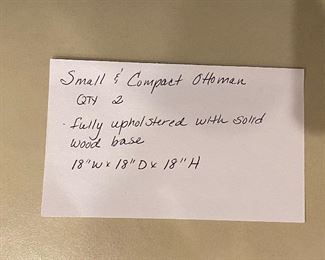 Small & Compact Ottoman
QTY 2
· fully upholstered with solid
wood base
18"W x 18"D x 18"H